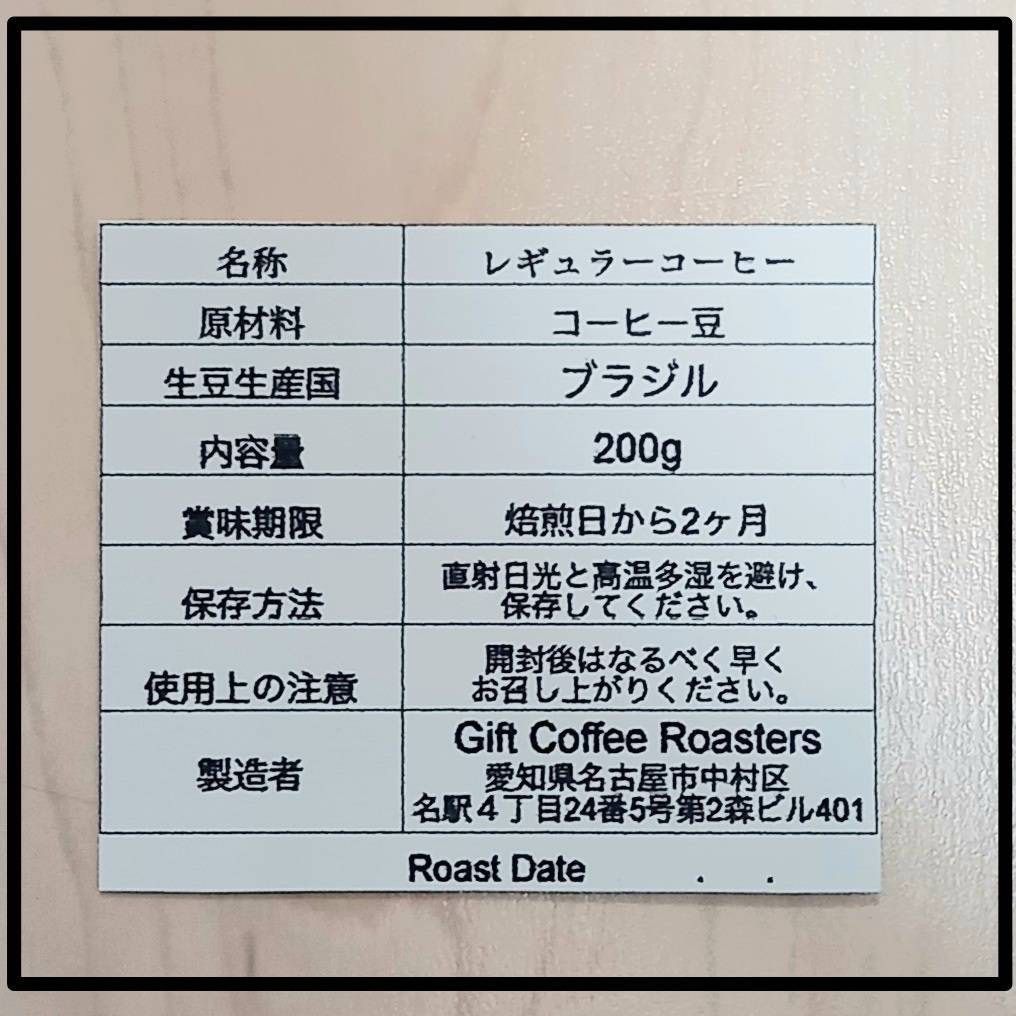 名称 レギュラーコーヒー
原材料 コーヒー豆
生豆生産国 ブラジル
内容量 200g
賞味期限 焙煎日から2ヶ月
保存方法 直射日光と高温多湿を避け、
保存してください。
使用上の注意 開封後はなるべく早く
お召し上がりください。
製造者 Gift Coffee Roasters
愛知県名古屋市中村区
名駅4丁目24番5号第2森ビル401
Roast Date . .